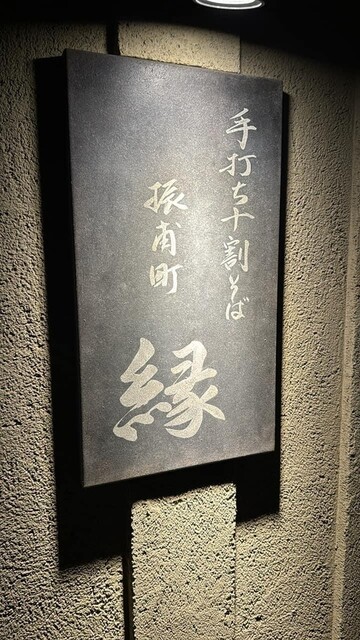 手打ち十割そば
振甫町
縁